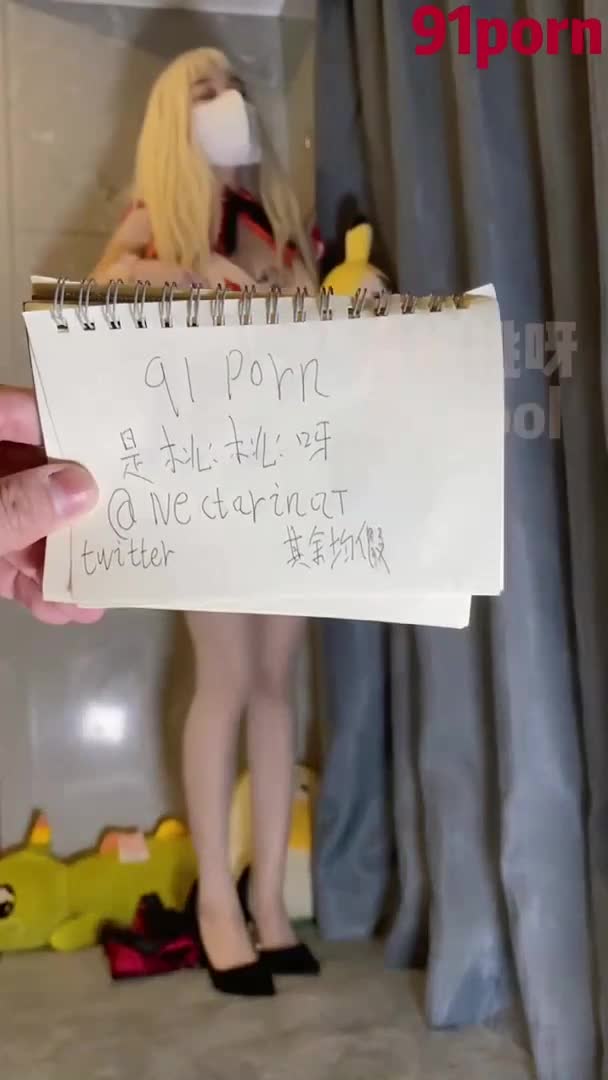 91porn
91 Porn
是桃桃呀
@NectarinaT
twitter 其余均假
呀
ool